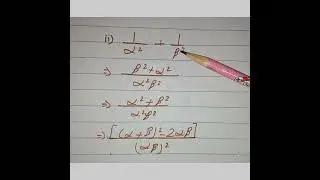 ii) 1/α² + 1/β²
⇒ β² + α² / α²β²
⇒ α² + β² / α²β²
⇒ [(α + β)² - 2αβ] / (αβ)²